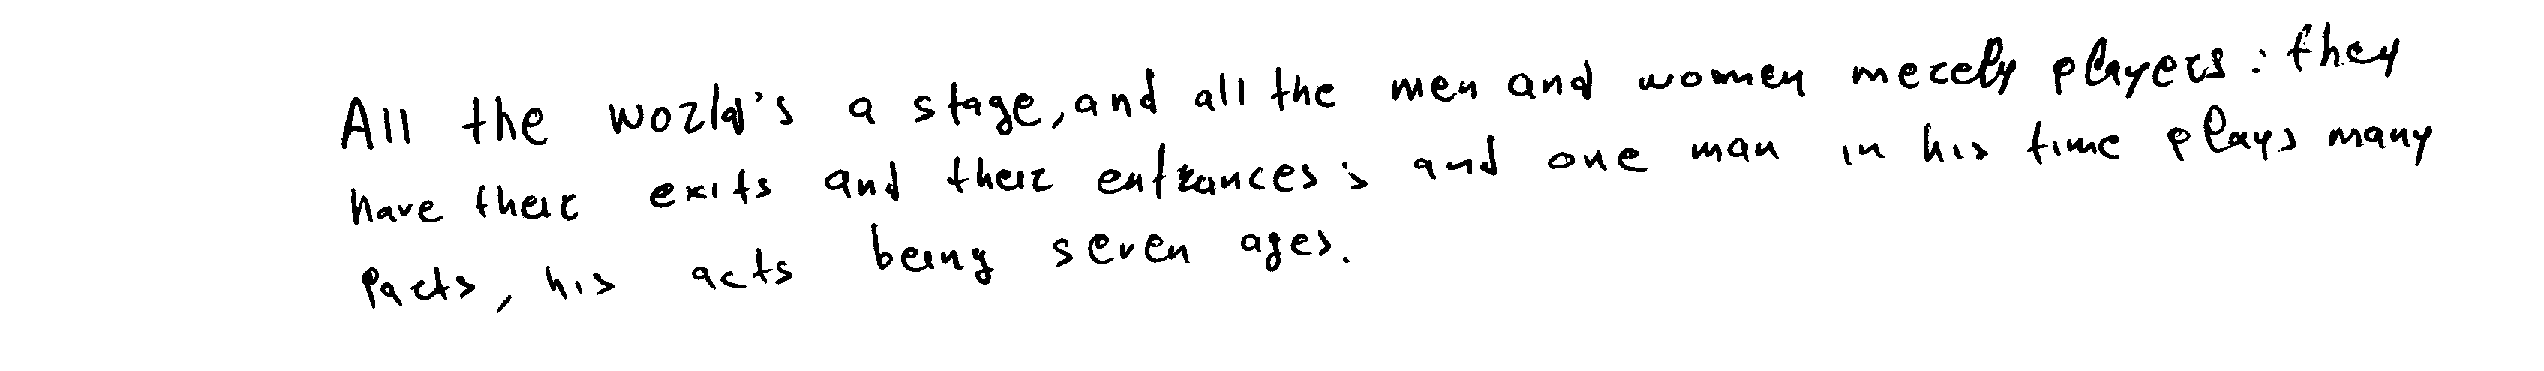 All the world's a stage, and all the men and women merely players: they
have their exits and their entrances; and one man in his time plays many
parts, his acts being seven ages.